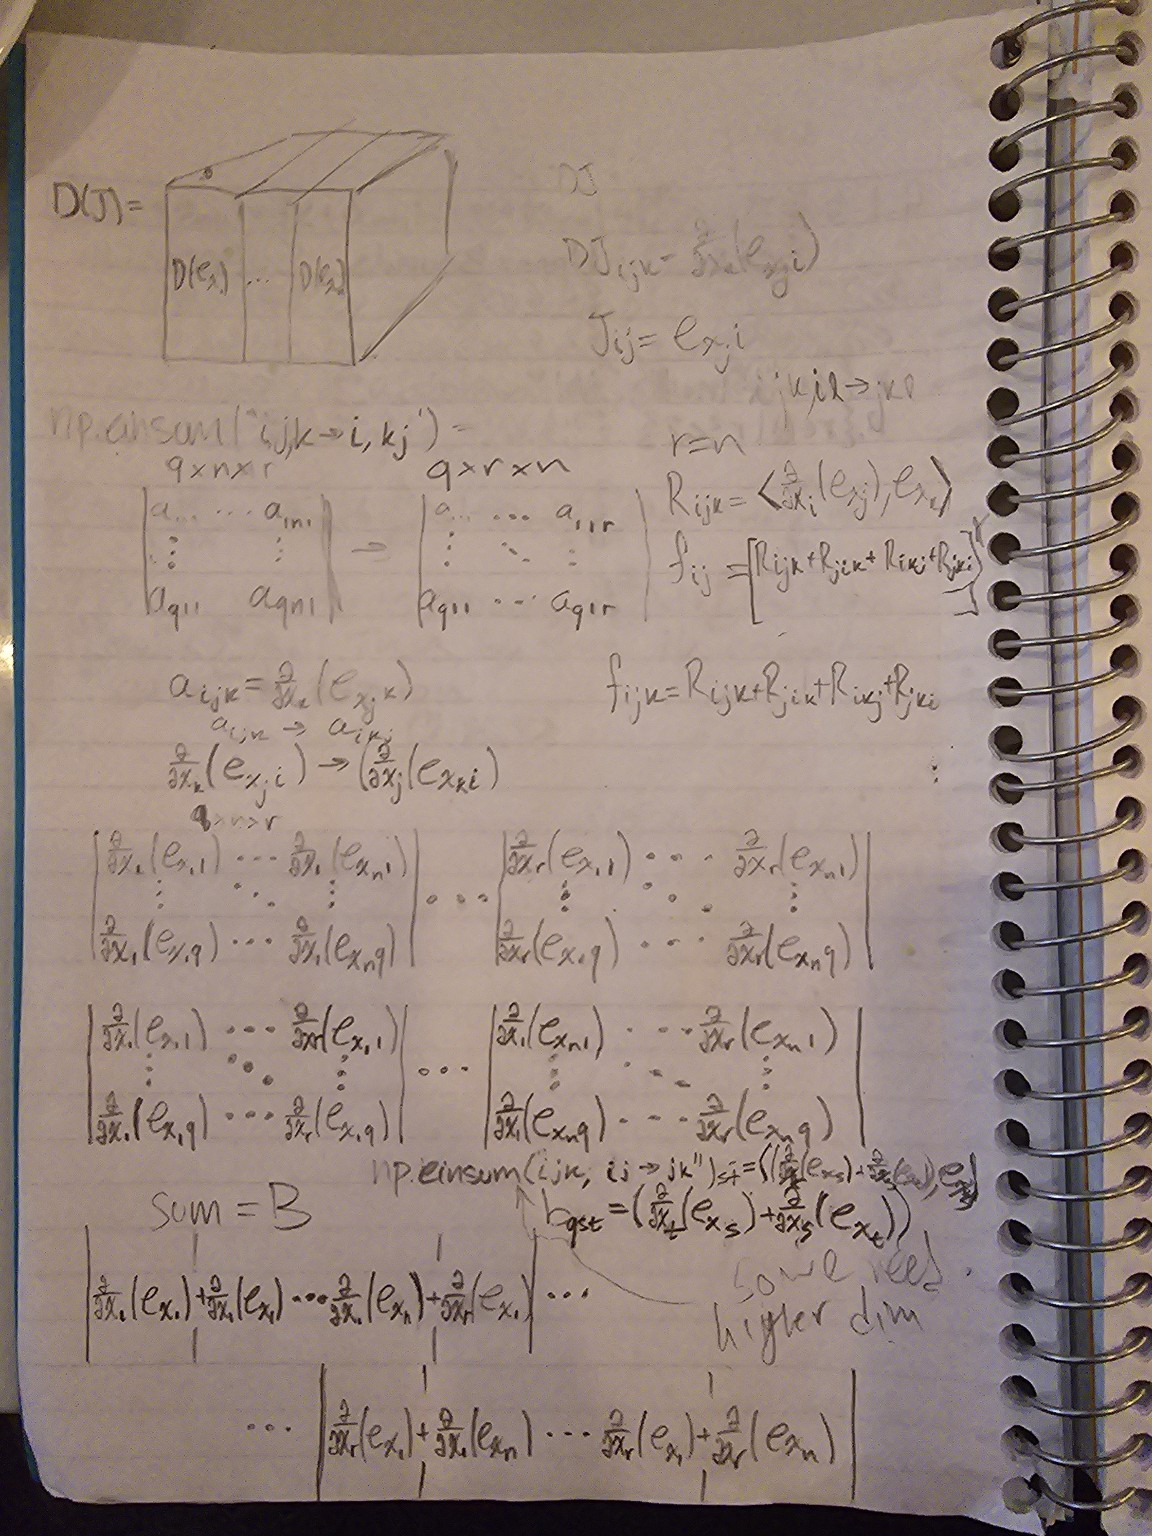 D(J) =
D(e_x₁) ... D(e_xₙ)
DJ
DJ_ijk = ∂/∂x_k (e_x_j i)
J_ij = e_x_j i
ijk,il→jkl
np.einsum("ij,k→i,kj") =
q×n×r q×r×n
|a... ··· a_1n1| → |a... ··· a_11r|
|a_q11 a_qn1| |a_q11 ··· a_q1r|
r=n
R_ijk = ⟨∂/∂x_i (e_x_j), e_x_k⟩
f_ij = [R_ijk + R_jik + R_ikj + R_jki]
a_ijk = ∂/∂x_k (e_x_j k)
a_ijk → a_ikj
f_ijk = R_ijk + R_jik + R_ikj + R_jki
∂/∂x_k (e_x_j i) → (∂/∂x_j (e_x_k i)
q×n×r
|∂/∂x₁ (e_x₁1) ··· ∂/∂x₁ (e_xₙ1)| ... |∂/∂x_r (e_x₁1) ··· ∂/∂x_r (e_xₙ1)|
|∂/∂x₁ (e_x₁q) ··· ∂/∂x₁ (e_xₙq)| |∂/∂x_r (e_x₁q) ··· ∂/∂x_r (e_xₙq)|
|∂/∂x₁ (e_x₁1) ··· ∂/∂x_r (e_x₁1)| ... |∂/∂x₁ (e_xₙ1) ··· ∂/∂x_r (e_xₙ1)|
|∂/∂x₁ (e_x₁q) ··· ∂/∂x_r (e_x₁q)| |∂/∂x₁ (e_xₙq) ··· ∂/∂x_r (e_xₙq)|
np.einsum(ijk, ij→jk")_st =
sum = B
b_qst = (∂/∂x_t (e_x_s) + ∂/∂x_s (e_x_t))
so we need
higher dim
|∂/∂x₁ (e_x₁) + ∂/∂x₁ (e_x₁) ··· ∂/∂x₁ (e_xₙ) + ∂/∂xₙ (e_x₁)| ...
... |∂/∂x_r (e_x₁) + ∂/∂x₁ (e_xₙ) ··· ∂/∂x_r (e_x₁) + ∂/∂x_r (e_xₙ)|